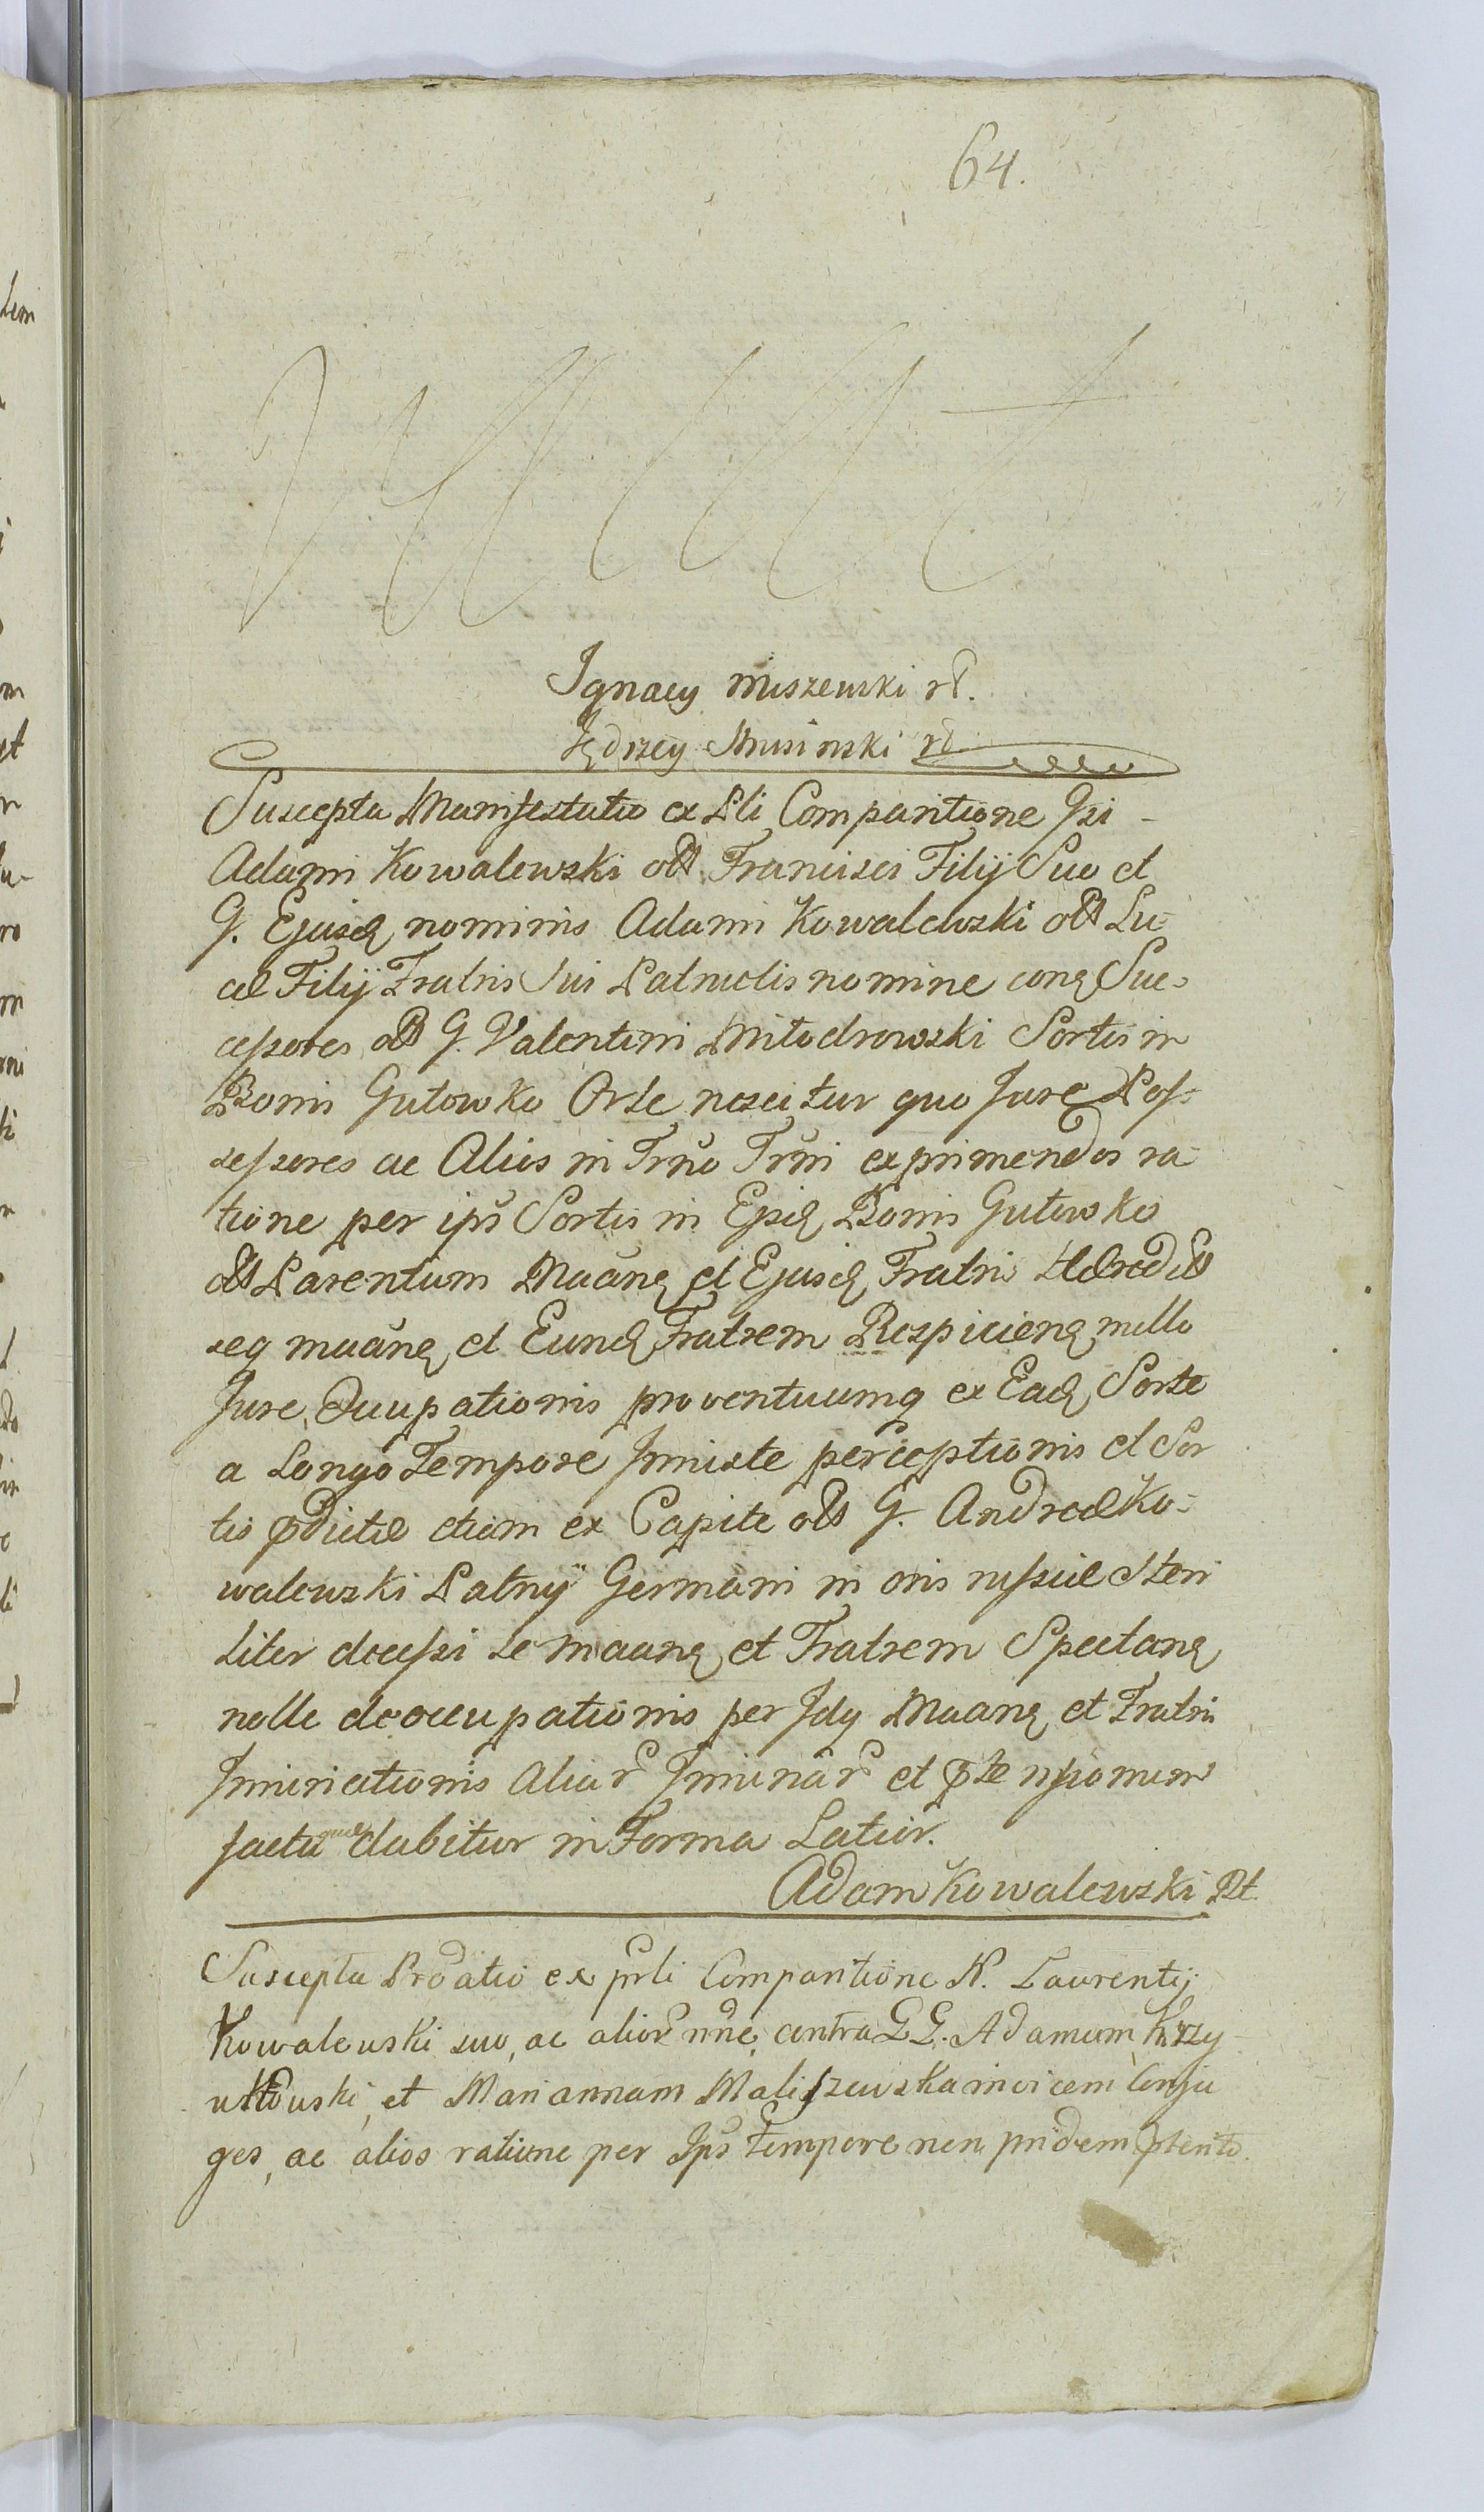 64.
Ignacy Miszewski rł.
Jędrzey Mnisinski rł
Suscepta Manifestatio ex Pli Comparitione Gsi -
Adami Kowalewski olł Francisci Filij Suo et
G. Ejusd nominis Adami Kowalewski olł Lu-
cæ Filij Fratris Sui Patruelis nomine conę Suc-
cessores olł G. Valentini Młodrowski Sortis in
Bonis Gutowko Orte nescitur quo Jure Pos-
sessores ac Alios in Trno Trni exprimendos ra-
tione per ips Sortis in Ejsd Bonis Gutowko
olł Parentum Maanę et Ejusd Fratris Hæred
seq maanę et Eund Fratrem Respicienę nullo
Jure Occupationis proventuumq ex Ead Sorte
a Longo Tempore Injuste perceptionis et Sor
tis pdictæ etiam ex Capite olł G. Andreæ Ko-
walewski Patrÿ Germani in oris Steri
liter decessi se maanę et Fratrem Spectanę
nolle deoccupationis per Idq Maanę et Fratris
Injuriationis Aliar Injuriar et ptensionum
facta quæ dabitur in Forma Latior.
Adam Kowalewski Rł
Suscepta Protatio ex prli Comparitione N. Laurentij
Kowalewski suo, ac alior nne, contra GG. Adamum Krzy
utowski, et Mariannam Maliszewska invicem Conju
ges, ac alios ratione per Ips tempore non pridem ptento